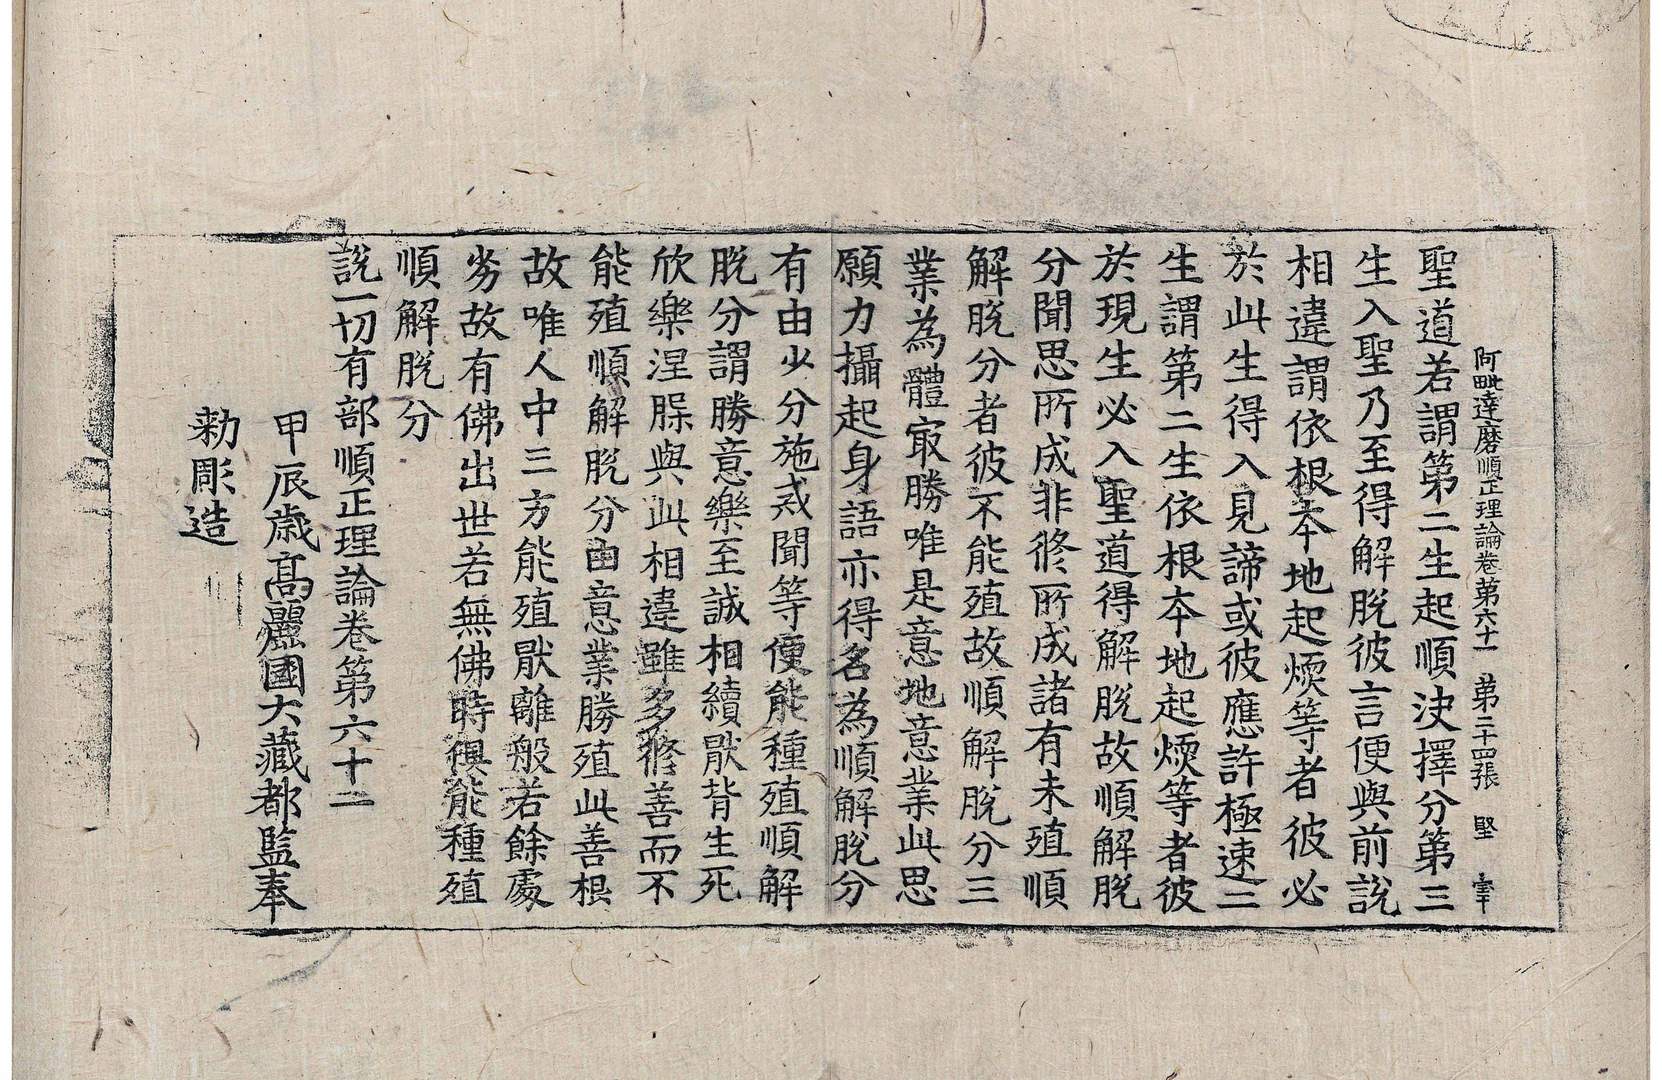 阿毗達磨順正理論卷第六十一 第二十四張 堅
聖道若謂第二生起順決擇分第三
生入聖乃至得解脫彼言便與前說
相違謂依根本地起煗等者彼必
於此生得入見諦或彼應許極速三
生謂第二生依根本地起煗等者彼
於現生必入聖道得解脫故順解脫
分聞思所成非修所成諸有未殖順
解脫分者彼不能殖故順解脫分三
業為體寂勝唯是意地意業此思
願力攝起身語亦得名為順解脫分
有由少分施戒聞等便能種殖順解
脫分謂勝意樂至誠相續厭背生死
欣樂涅槃與此相違雖多修善而不
能殖順解脫分由意業勝殖此善根
故唯人中三方能殖厭離般若餘處
劣故有佛出世若無佛時俱能種殖
順解脫分
說一切有部順正理論卷第六十二
甲辰歲高麗國大藏都監奉
勅彫造